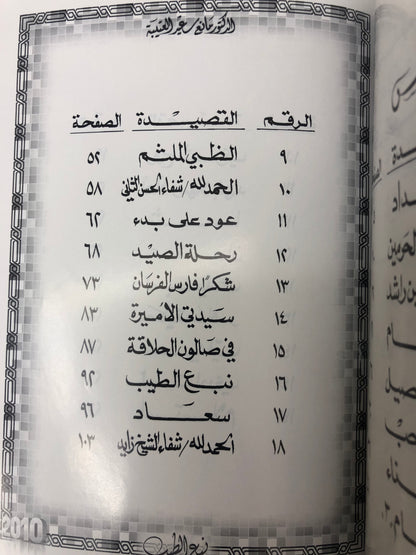 الدكتور مانع سعيد العتيبة
الرقم القصيدة الصفحة
٩ الظبي الملثم ٥٢
١٠ الحمد لله/شفاء الحسن الثاني ٥٨
١١ عود على بدء ٦٢
١٢ رحلة الصيد ٦٨
١٣ شكرًا فارس الفرسان ٧٣
١٤ سيدتي الأميرة ٨٣
١٥ في صالون الحلاقة ٨٧
١٦ نبع الطيب ٩٢
١٧ سعاد ٩٦
١٨ الحمد لله/شفاء الشيخ زايد ١٠٣
نبع الطيب
2010